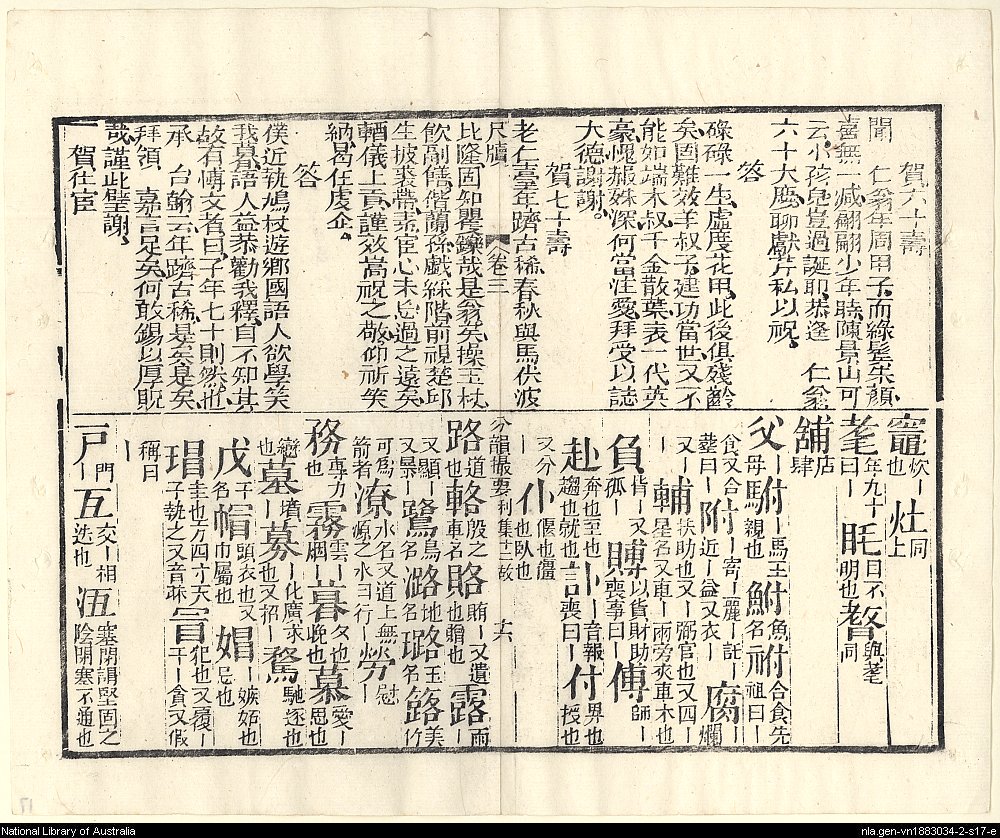 賀六十壽
聞 仁翁年周甲子而綠鬢朱顏
喜無一減翩翩少年聽陳景山可
云小孩兒豈過誕耶恭逢 仁翁
六十大慶聊獻芹私以祝
答
碌碌一生虛度花甲此後俱殘齡
矣固難效羊叔子建功當世又不
能如端木叔千金散葉表一代英
豪愧赧姝深何當注愛拜受以誌
大德謝謝
賀七十壽
老仁臺年躋古稀春秋與馬伏波
尺牘 卷三
比隆固知矍鑠哉是翁矣操玉杖
飲副饍偕蘭孫戲綵階前視楚邱
生披裘帶索宦心未忘過之遠矣
輶儀上貢謹效嵩祝之敬仰祈笑
納曷任虔企
答
僕近執鳩杖遊鄉國語人欲學笑
我暮語人益恭勸我釋自不知其
故有博文者曰子年七十則然也
承 台翰云年躋古稀是矣是矣
拜領 嘉言足矣何敢錫以厚貺
哉謹此璧謝
賀仕宦
竈 炊丨也 灶 同上
耄 年九十曰丨 眊 目不明也 瞀 與耄同
舖 店肆
父 母丨 駙 丨馬親也 鮒 魚名 祔 合食先祖曰丨
食又合葬曰丨 附 寄丨麗丨託丨近丨益又衣丨 腐 丨爛
又丨 輔 扶助也又丨弼官也又四丨
丨 輔 星名又車丨兩旁夾車木也
負 背丨又孤丨 賻 以貨財助喪事曰丨 傅 師丨
赴 奔也至也趨也就也 訃 丨音報喪曰丨 付 畀也授也
又分丨 仆 偃也僵也臥也
丨
分韻撮要利集十二故 十六
路 道也 輅 殷之車名 賂 賄丨又遺也贈也 露 雨丨
又顯丨又暴丨 鷺 鳥名 潞 地名 璐 美玉 簬 竹
可為箭者 潦 水名又道上無源之水曰行丨 勞 慰丨
務 專力也 霧 雲丨烟丨 暮 夕也晚也 慕 愛丨思也
戀也 墓 墳丨 募 丨化廣求也又招丨 騖 馳逐也
戊 干名 帽 頭衣也又丨巾屬也 媢 丨嫉妬也忌也
瑁 圭也方四寸天子執之又音昧 冒 犯也又覆丨干丨貪又假
稱曰丨
戸 門丨 互 交丨相丨迭也 沍 塞閉謂堅固之陰閉塞不通也
National Library of Australia
nla.gen-vn1883034-2-s17-e